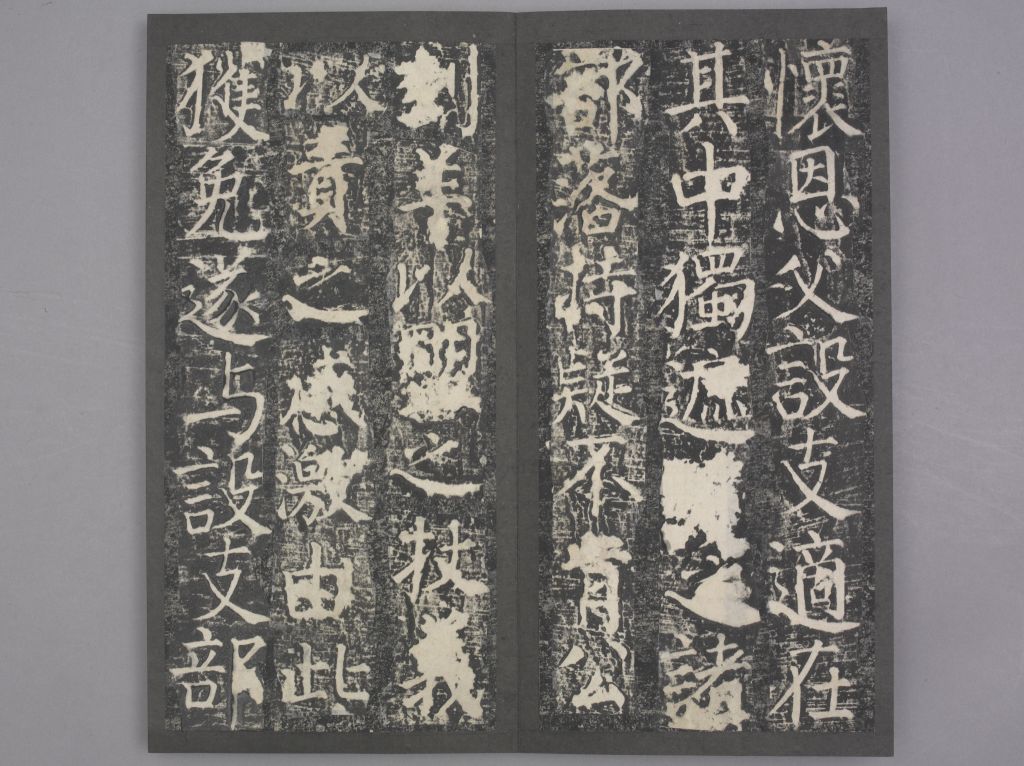 懷恩父設支適在
其中獨遮之諸
部落持疑不肯公
羊以明之杖義
以責之感激由此
獲免遂与設支部